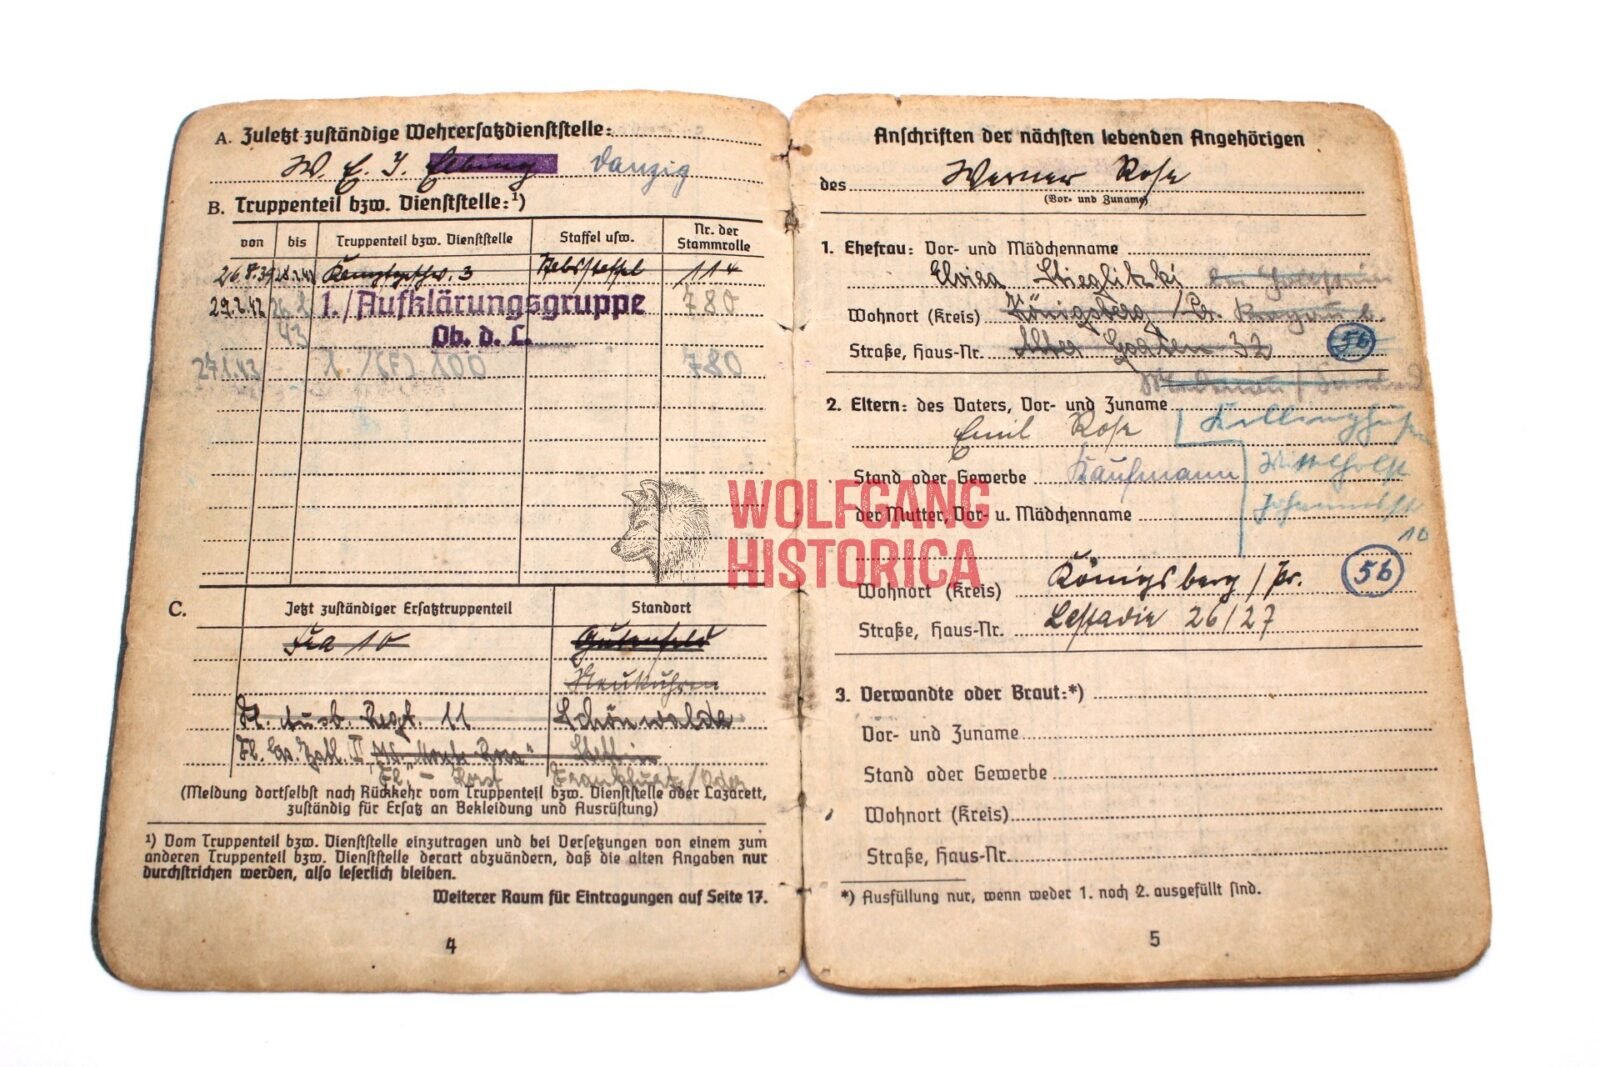 A. Zuletzt zuständige Wehrersatzdienststelle:
W. E. I. Elbing Danzig
B. Truppenteil bzw. Dienststelle:¹)
von bis Truppenteil bzw. Dienststelle Staffel usw. Nr. der Stammrolle
26.8.39 28.2.42 Kampfgeschw. 3 Stabsstaffel 114
29.2.42 26.1.43 1./Aufklärungsgruppe 780
Ob. d. L.
27.1.43 1 /(F) 100 780
C. Jetzt zuständiger Ersatztruppenteil Standort
Gutenfeld
Neukuhren
Fl. Ausb. Regt. 11 Schönwalde
Stettin
Frankfurt/Oder
(Meldung dortselbst nach Rückkehr vom Truppenteil bzw. Dienststelle oder Lazarett,
zuständig für Ersatz an Bekleidung und Ausrüstung)
¹) Vom Truppenteil bzw. Dienststelle einzutragen und bei Versetzungen von einem zum
anderen Truppenteil bzw. Dienststelle derart abzuändern, daß die alten Angaben nur
durchstrichen werden, also leserlich bleiben.
Weiterer Raum für Eintragungen auf Seite 17.
4
Anschriften der nächsten lebenden Angehörigen
des Werner Rose
(Vor- und Zuname)
1. Ehefrau: Vor- und Mädchenname
Stieglitzki
Wohnort (Kreis) Königsberg /Pr.
Straße, Haus-Nr. Alter Garten 32 5b
2. Eltern: des Vaters, Vor- und Zuname
Emil Rose
Stand oder Gewerbe Kaufmann
der Mutter, Vor- u. Mädchenname
10
Wohnort (Kreis) Königsberg / Pr. 5b
Straße, Haus-Nr. Lastadie 26/27
3. Verwandte oder Braut:*)
Vor- und Zuname
Stand oder Gewerbe
Wohnort (Kreis)
Straße, Haus-Nr.
*) Ausfüllung nur, wenn weder 1. noch 2. ausgefüllt sind.
5
WOLFGANG
HISTORICA